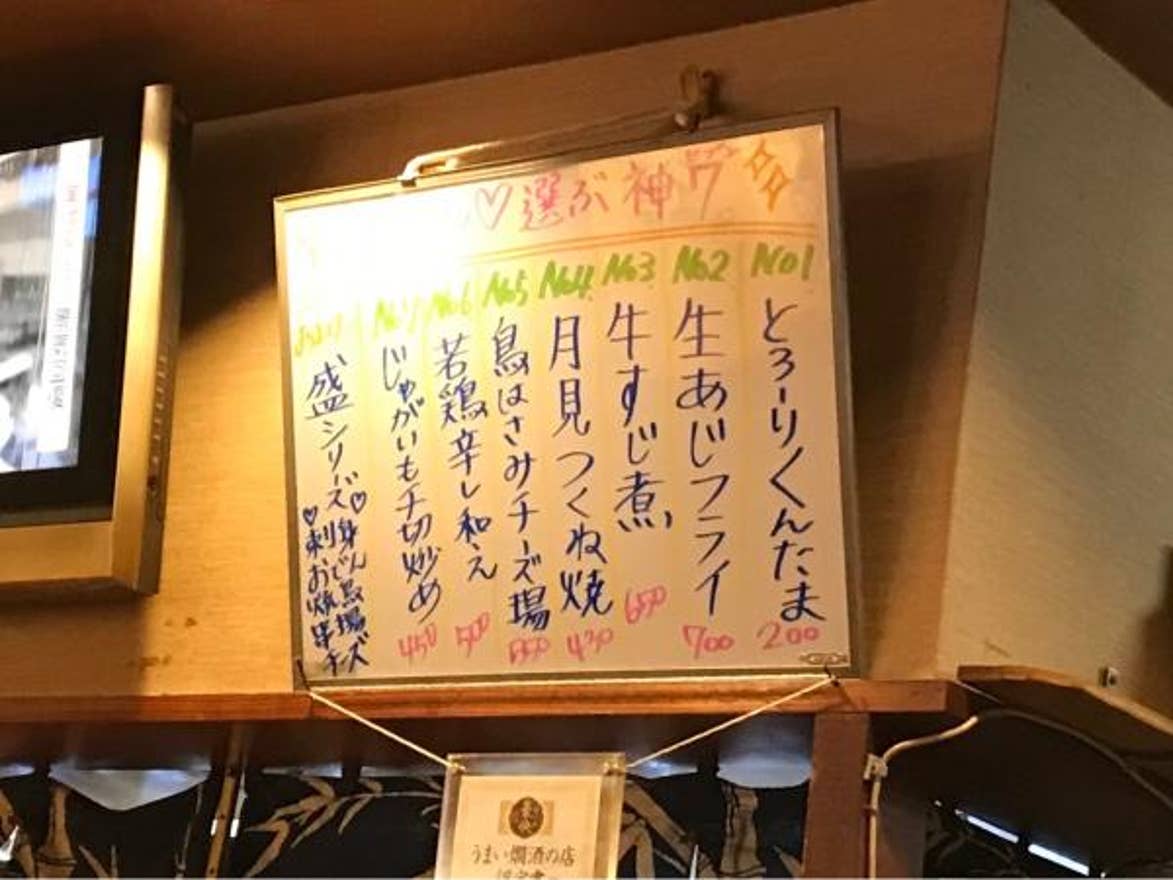 ♡選ぶ神7
No1
とろーりくんたま
200
No2
生あじフライ
700
No3
牛すじ煮
650
No4
月見つくね焼
430
No5
鳥はさみチーズ揚
550
No6
若鶏辛し和え
500
No7
じゃがいもチ切炒め
450
盛シリーズ
♡刺お焼串チーズ
うまい燗酒の店